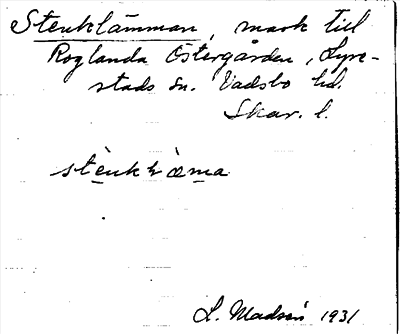 Stenklämman, mark till
Roglanda Östergården, Lyre-
stads sn. Vadsbo hd.
Skar. l.
L. Madsén 1931